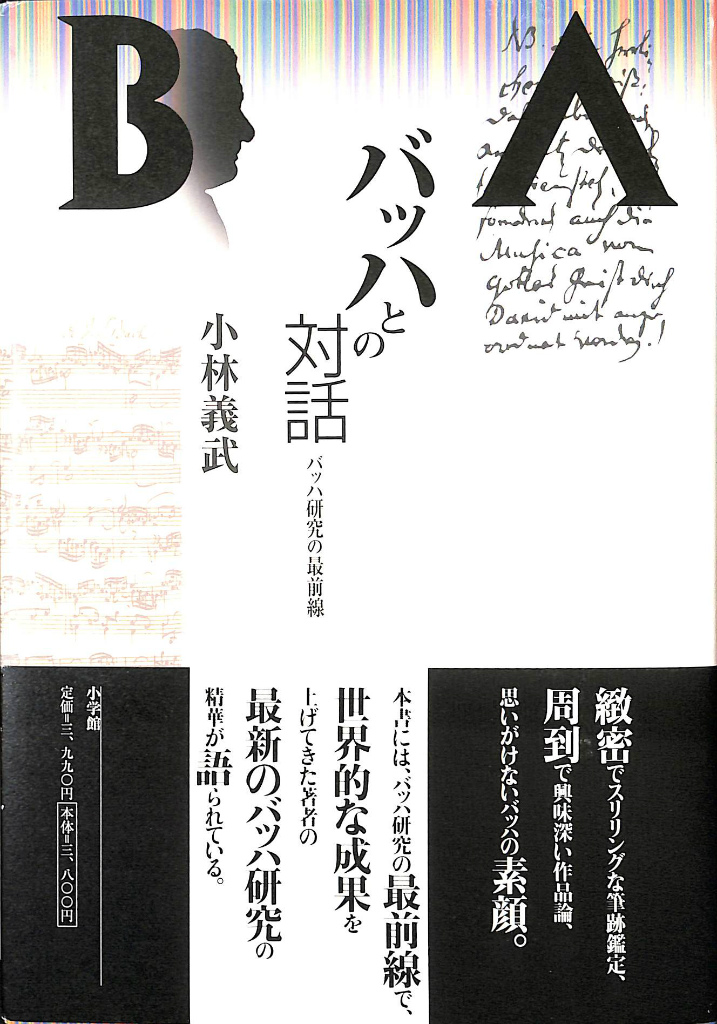 B Λ
バッハとの
対話
バッハ研究の最前線
小林義武
NB.
Musica
緻密でスリリングな筆跡鑑定、
周到で興味深い作品論、
思いがけないバッハの素顔。
本書には、バッハ研究の最前線で、
世界的な成果を
上げてきた著者の
最新のバッハ研究の
精華が語られている。
小学館
定価=三、九九〇円 本体=三、八〇〇円